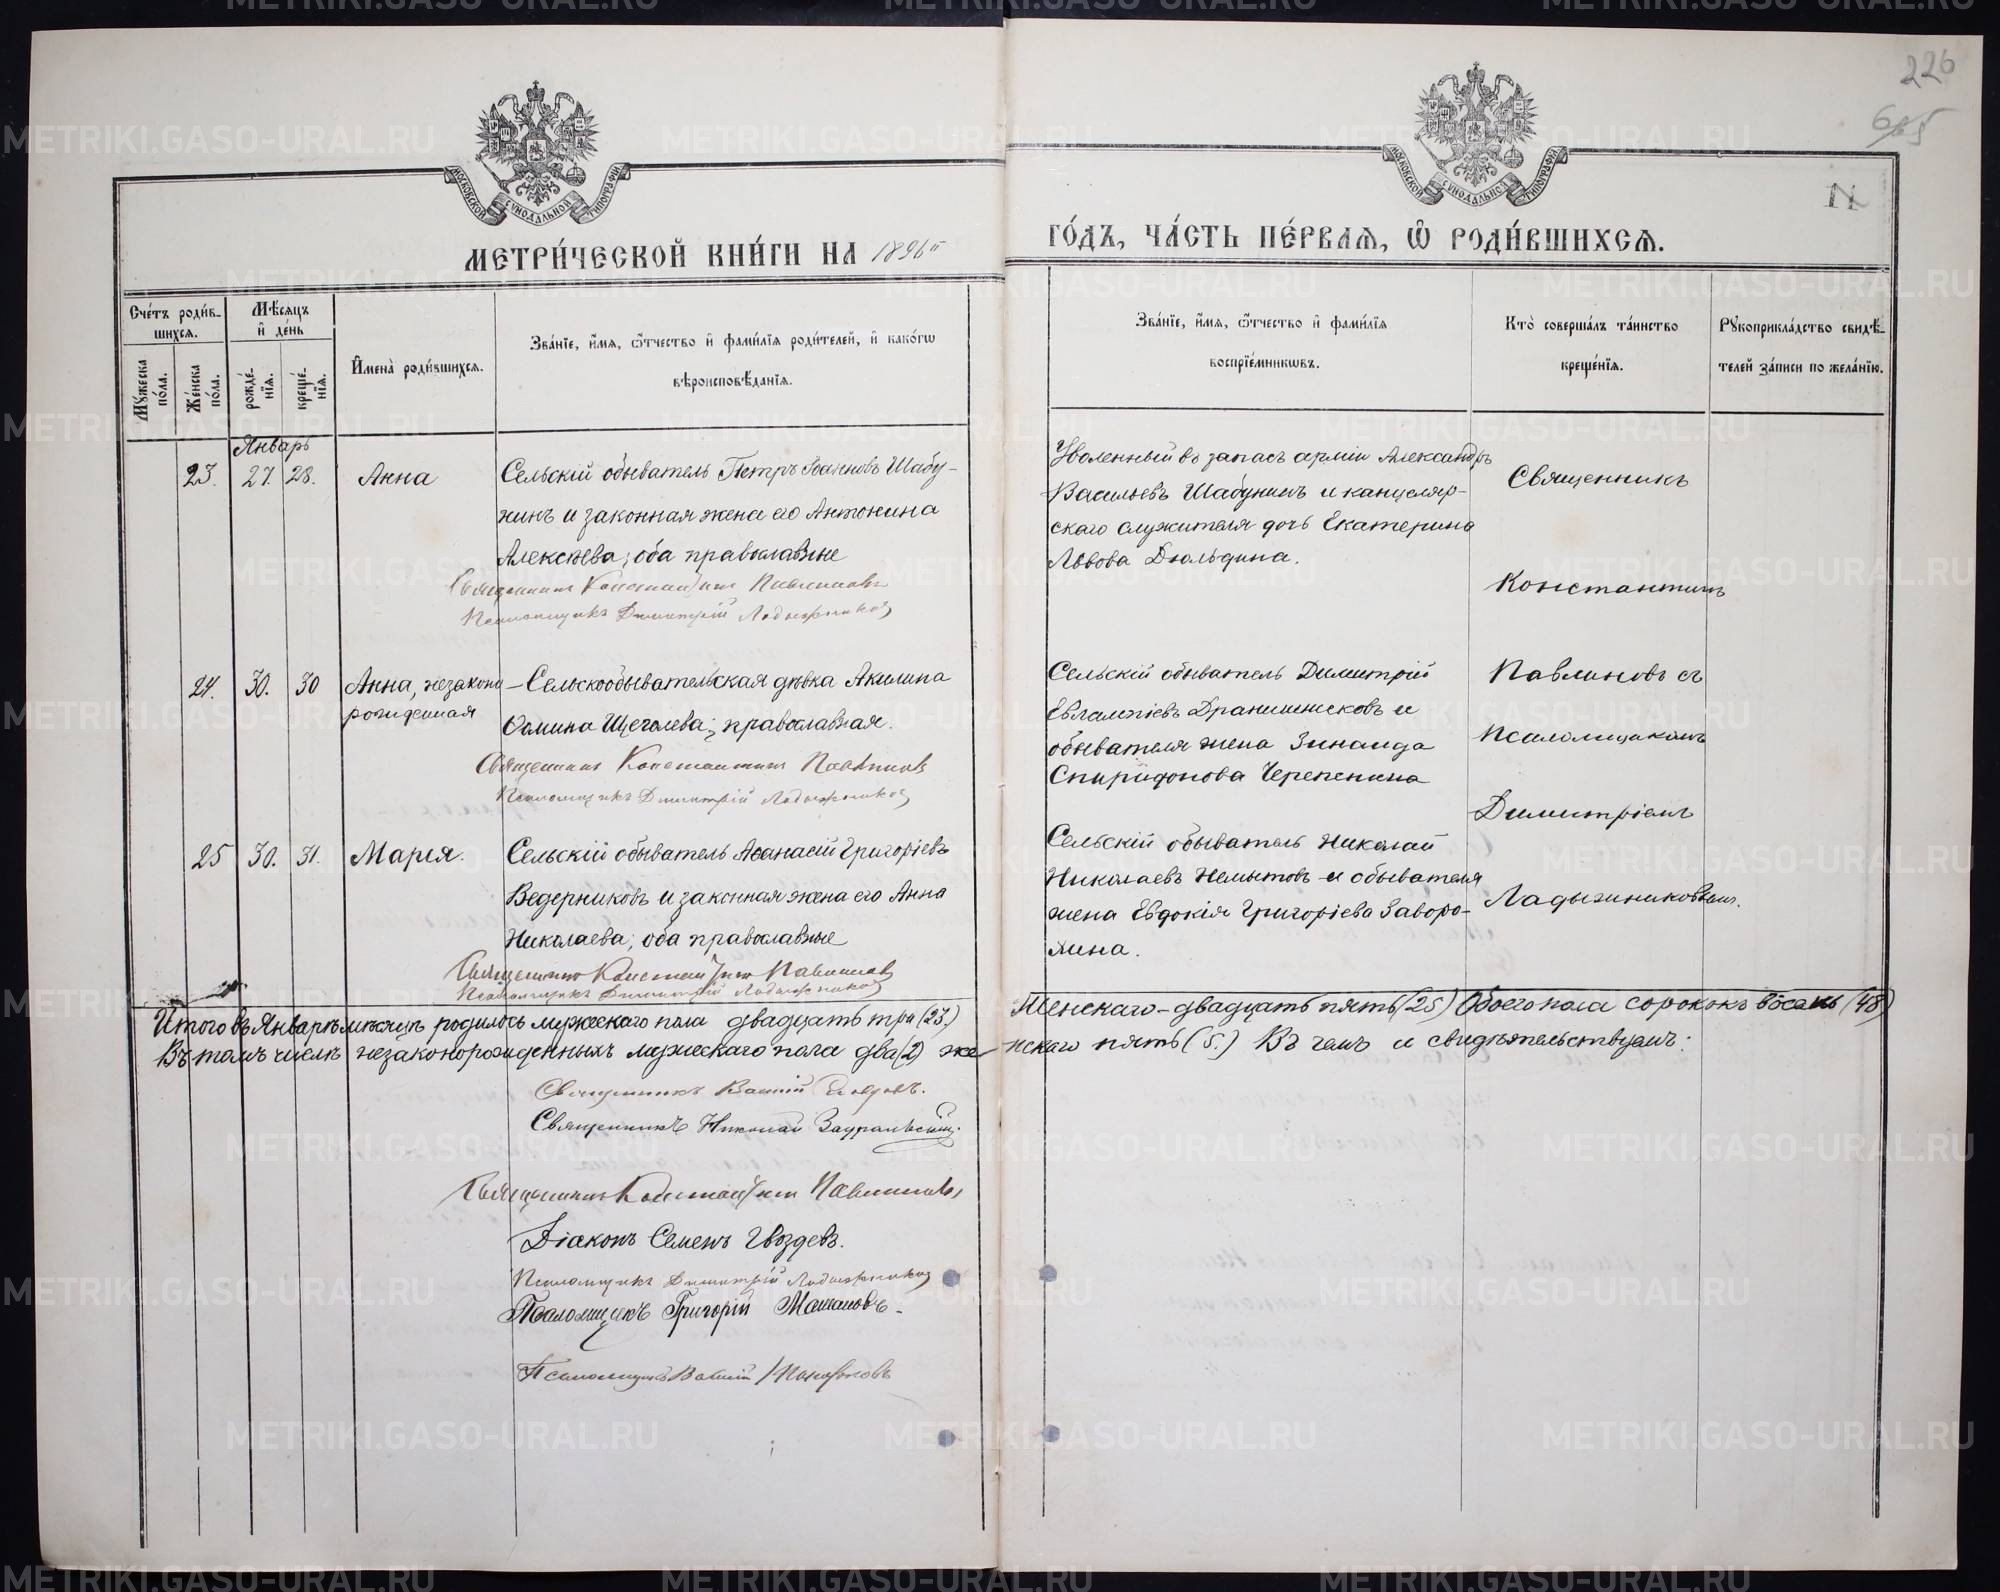 226
615
МОСКОВСКОЙ СѴНОДАЛЬНОЙ ТИПОГРАФІИ
МОСКОВСКОЙ СѴНОДАЛЬНОЙ ТИПОГРАФІИ
МЕТРИ́ЧЕСКОЙ КНИ́ГИ НА 1896й
ГО́ДЪ, ЧА́СТЬ ПЕ́РВАѦ, Ѽ РОДИ́ВШИХСѦ.
Сче́тъ роди́вшихсѧ.
Мѣ́сѧцъ и де́нь
Мꙋ́жеска по́ла.
Же́нска по́ла.
рожде́нїѧ.
креще́нїѧ.
И҆мена̀ роди́вшихсѧ.
Зва́нїе, и҆́мѧ, ѻ҆́тчество и҆ фами́лїѧ роди́телей, и҆ како́гѡ
вѣроисповѣ́данїѧ.
Зва́нїе, и҆́мѧ, ѻ҆́тчество и҆ фами́лїѧ
воспрїе́мникѡвъ.
Кто̀ соверша́лъ та́инство
креще́нїѧ.
Рꙋкоприкла́дство свидѣ́-
телей за́писи по жела́нїю.
Январь
23. 27. 28. Анна
Сельскій обыватель Петръ Іоанновъ Шабу-
нинъ и законная жена его Антонина
Алексѣева; оба православные
Священникъ Константинъ Павлиновъ
Псаломщикъ Димитрій Ладыжниковъ
Уволенный въ запасъ арміи Александръ
Васильевъ Шабунинъ и канцеляр-
скаго служителя дочь Екатерина
Львова Дюльдина.
24. 30. 30 Анна, незаконо-
рожденная
Сельскообывательская дѣвка Акилина
Ѳомина Щеголева; православная.
Священникъ Константинъ Павлиновъ
Псаломщикъ Димитрій Ладыжниковъ
Сельскій обыватель Димитрій
Евлампіевъ Дранишниковъ и
обывателя жена Зинаида
Спиридонова Черепенина
25 30. 31. Марія.
Сельскій обыватель Аѳанасій Григоріевъ
Ведерниковъ и законная жена его Анна
Николаева; оба православные
Священникъ Константинъ Павлиновъ
Псаломщикъ Димитрій Ладыжниковъ
Сельскій обыватель Николай
Николаевъ Немытовъ и обывателя
жена Евдокія Григоріева Заворо-
хина.
Священникъ
Константинъ
Павлиновъ съ
псаломщикомъ
Димитріемъ
Ладыжниковымъ.
Итого въ Январѣ мѣсяцѣ родилось мужескаго пола двадцать три (23.) Женскаго - двадцать пять (25) Обоего пола сорокъ восемь (48)
Въ томъ числѣ незаконорожденныхъ мужескаго пола два (2) женскаго пять (5.) Въ чемъ и свидѣтельствуемъ:
Священникъ Николай Зауральскій.
Священникъ Константинъ Павлиновъ
Діаконъ Семенъ Гвоздевъ.
Псаломщикъ Димитрій Ладыжниковъ
Псаломщикъ Григорій Мамаовъ
Псаломщикъ Василій Пономаревъ
METRIKI.GASO-URAL.RU